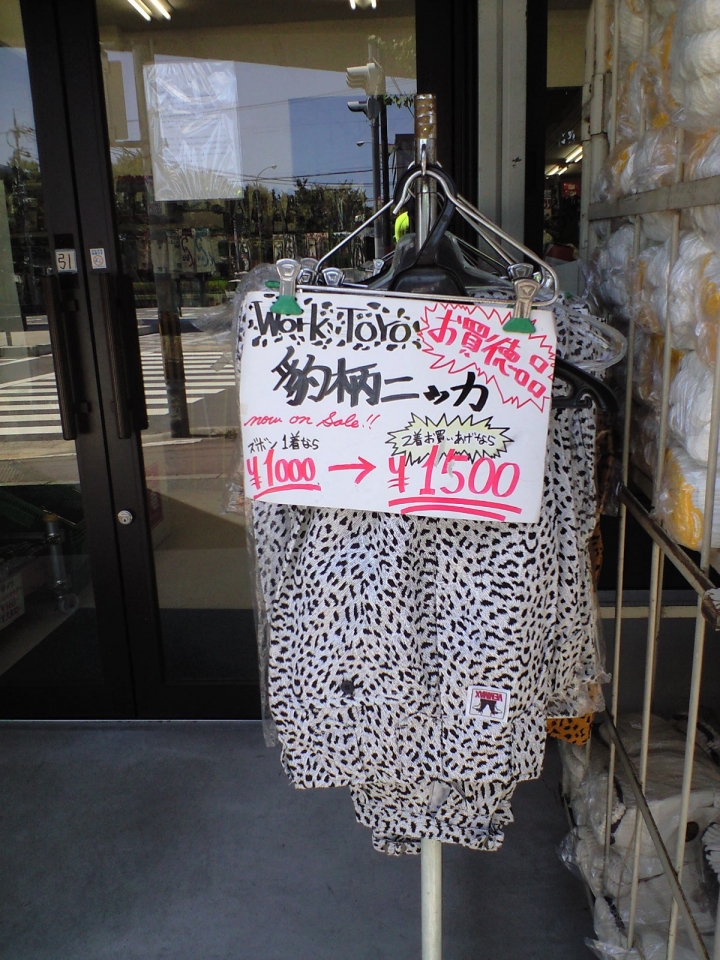 Work TOYO
お買徳品
豹柄ニッカ
now on Sale!!
ズボン1着なら
¥1000 → 2着お買いあげなら
¥1500
引